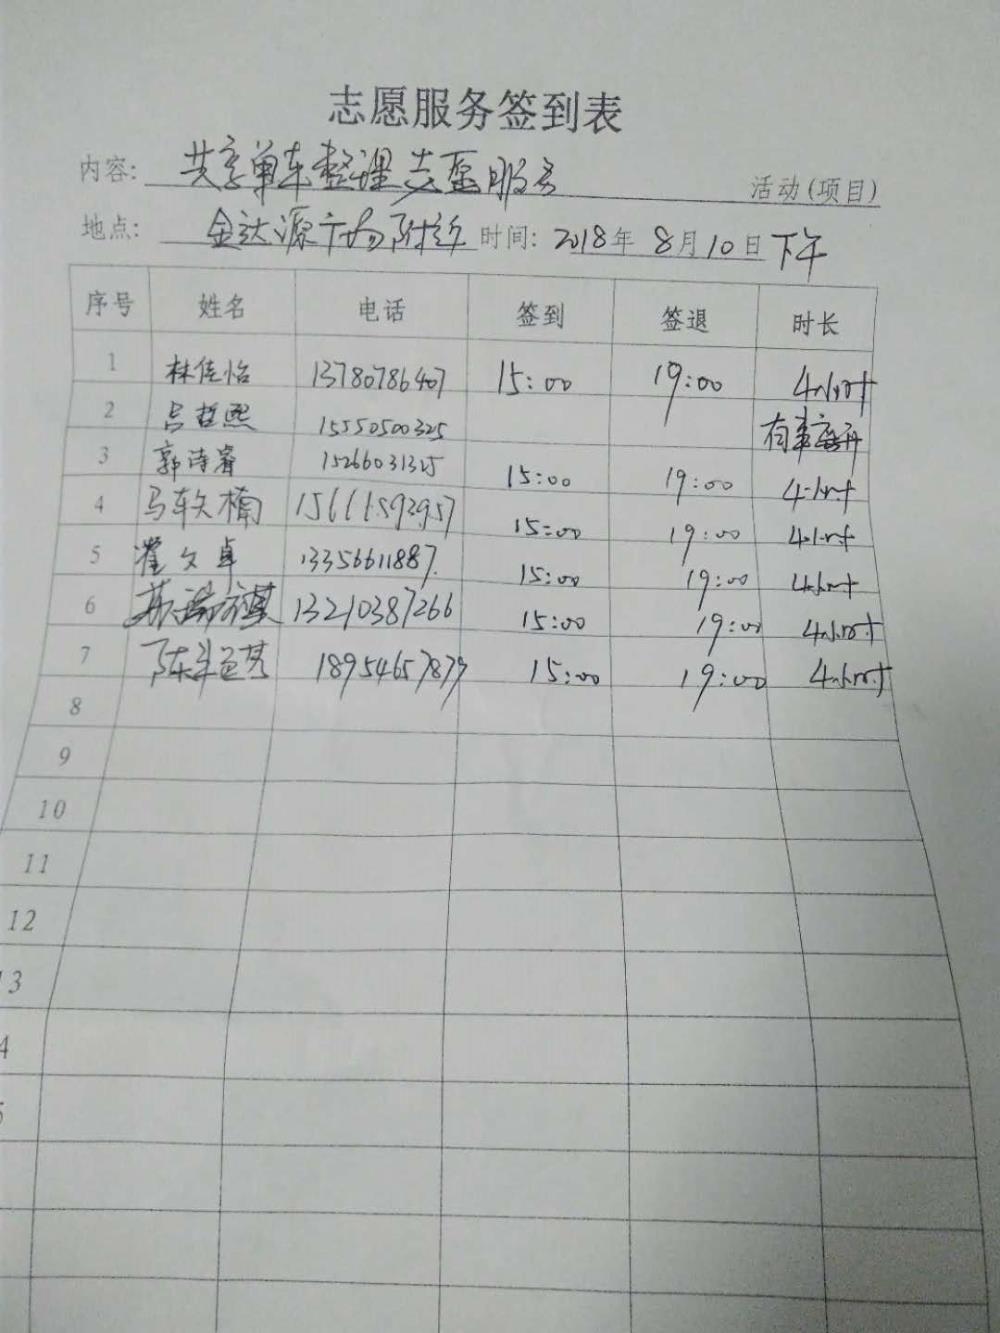 志愿服务签到表
内容: 共享单车整理志愿服务 活动(项目)
地点: 金达源广场附近 时间: 2018年 8月10日下午
序号 姓名 电话 签到 签退 时长
1 林佳怡 13780786407 15:00 19:00 4小时
2 吕哲熙 15550500325 有事离开
3 郭诗睿 15266031325 15:00 19:00 4小时
4 马轶楠 15611592957 15:00 19:00 4小时
5 翟文卓 13356611887 15:00 19:00 4小时
6 13210387266 15:00 19:00 4小时
7 18954657879 15:00 19:00 4小时
8
9
10
11
12
13
4
5